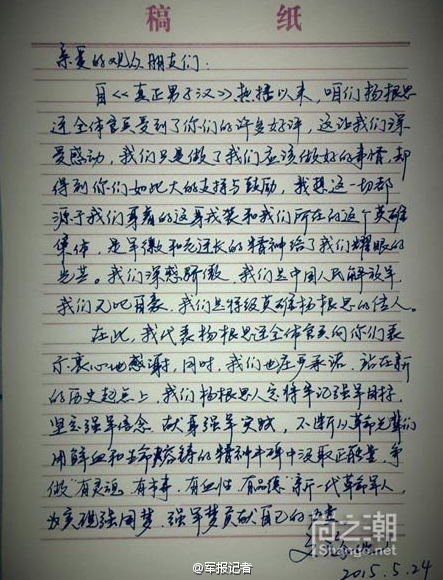 稿 纸
亲爱的观众朋友们:
自《《真正男子汉》》热播以来,咱们杨根思
连全体官兵受到了你们的许多好评,这让我们深
受感动,我们只是做了我们应该做好的事情,却
得到你们如此大的支持与鼓励,我想这一切都
源于我们穿着的这身戎装和我们所在的这个英雄
集体,是军徽和老连长的精神给了我们耀眼的
光芒。我们深感骄傲,我们是中国人民解放军,
我们无比自豪,我们是特级英雄杨根思的传人。
在此,我代表杨根思连全体官兵向你们表
示衷心地感谢,同时,我们也庄严承诺,站在新
的历史起点上,我们杨根思人定将牢记强军目标,
坚定强军信念,献身强军实践,不断从革命先辈们
用鲜血和生命熔铸的精神丰碑中汲取正能量,争
做"有灵魂、有本事、有血性、有品德"新一代革命军人,
为实现强国梦、强军梦贡献自己的
2015.5.24
向之潮
Shange.net
@军报记者